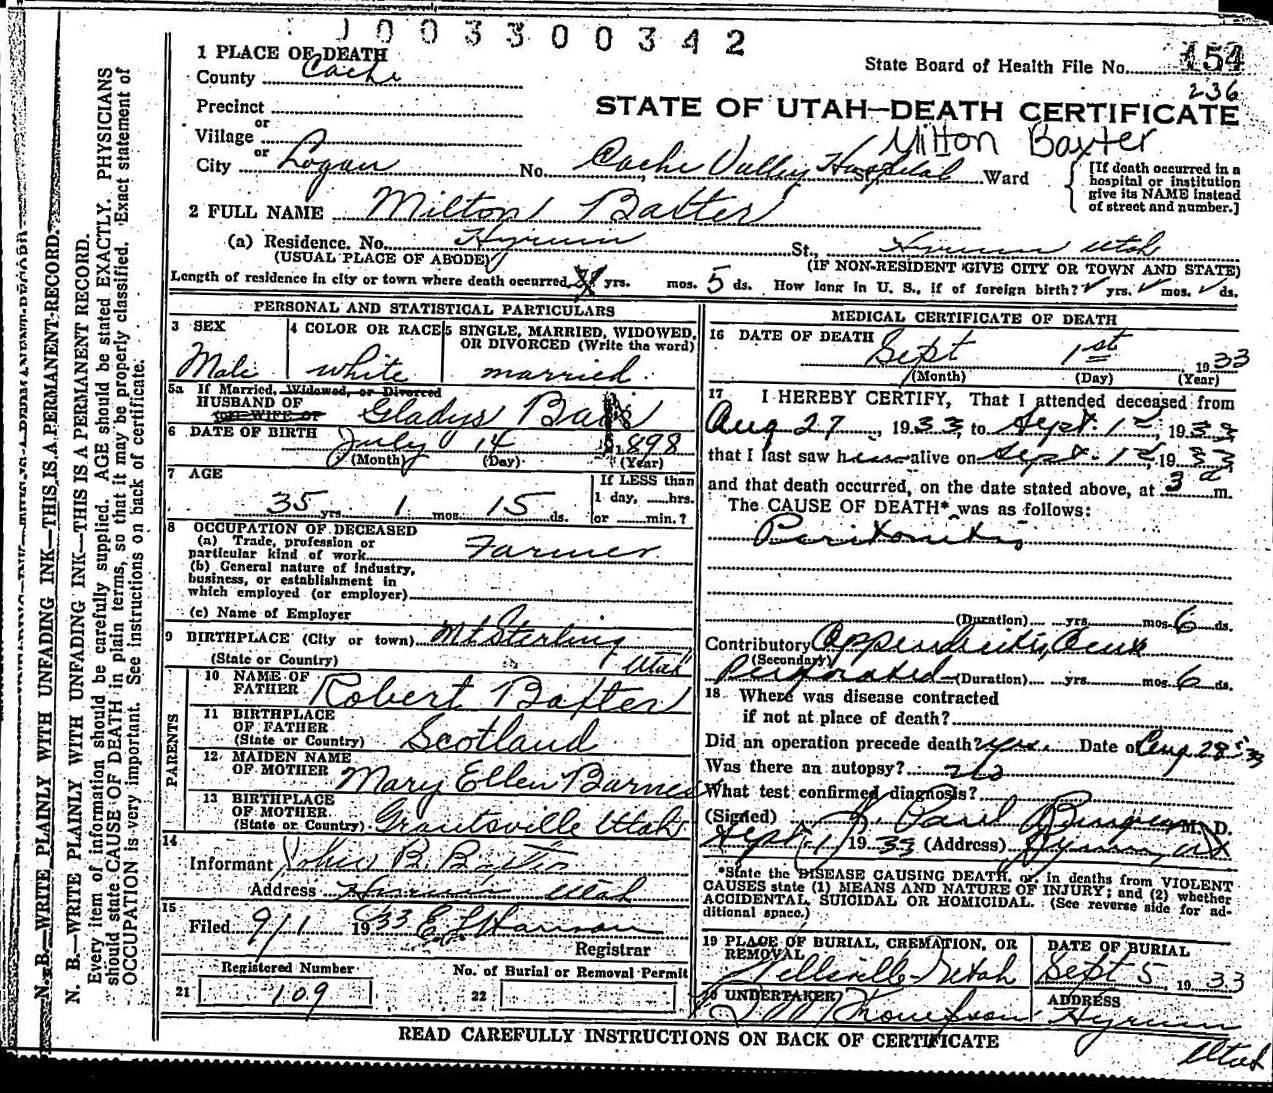 1003300342
1 PLACE OF DEATH
County Cache
State Board of Health File No. 154
236
Precinct
or
Village
or
STATE OF UTAH—DEATH CERTIFICATE
Milton Baxter
City Logan No. Cache Valley Hospital Ward
[If death occurred in a
hospital or institution
give its NAME instead
of street and number.]
2 FULL NAME Milton Baxter
(a) Residence. No. Hyrum St., Hyrum Utah
(USUAL PLACE OF ABODE) (IF NON-RESIDENT GIVE CITY OR TOWN AND STATE)
Length of residence in city or town where death occurred yrs. mos. 5 ds. How long in U. S., if of foreign birth? yrs. mos. ds.
PERSONAL AND STATISTICAL PARTICULARS
3 SEX
Male
4 COLOR OR RACE
white
5 SINGLE, MARRIED, WIDOWED,
OR DIVORCED (Write the word)
married
5a If Married, Widowed, or Divorced
HUSBAND OF
(or) WIFE OF
Gladys
6 DATE OF BIRTH July 14 1898
(Month) (Day) (Year)
7 AGE
35 yrs. 1 mos. 15 ds.
If LESS than
1 day, ......hrs.
or ......min.?
8 OCCUPATION OF DECEASED
(a) Trade, profession or
particular kind of work Farmer
(b) General nature of industry,
business, or establishment in
which employed (or employer)
(c) Name of Employer
9 BIRTHPLACE (City or town) Mt Sterling
(State or Country) Utah
PARENTS
10 NAME OF
FATHER Robert Baxter
11 BIRTHPLACE
OF FATHER
(State or Country) Scotland
12 MAIDEN NAME
OF MOTHER Mary Ellen Barnes
13 BIRTHPLACE
OF MOTHER
(State or Country) Grantsville Utah
14
Informant John B. Baxter
Address Hyrum Utah
15
Filed 9/1 1933
Registrar
Registered Number
21 109
No. of Burial or Removal Permit
22
MEDICAL CERTIFICATE OF DEATH
16 DATE OF DEATH
Sept 1st 1933
(Month) (Day) (Year)
17 I HEREBY CERTIFY, That I attended deceased from
Aug 27, 1933, to Sept. 1st, 1933
that I last saw him alive on Sept. 1st, 1933
and that death occurred, on the date stated above, at 3 a m.
The CAUSE OF DEATH* was as follows:
Peritonitis
(Duration) yrs. mos. 6 ds.
Contributory Appendicitis, Acute
(Secondary)
Perforated (Duration) yrs. mos. 6 ds.
18 Where was disease contracted
if not at place of death?
Did an operation precede death? yes. Date of Aug 28 33
Was there an autopsy? no
What test confirmed diagnosis?
(Signed) M. D.
Sept 1, 1933 (Address) Hyrum, Ut
*State the DISEASE CAUSING DEATH, or, in deaths from VIOLENT
CAUSES state (1) MEANS AND NATURE OF INJURY; and (2) whether
ACCIDENTAL, SUICIDAL OR HOMICIDAL. (See reverse side for ad-
ditional space.)
19 PLACE OF BURIAL, CREMATION, OR
REMOVAL
Wellsville Utah
DATE OF BURIAL
Sept 5, 1933
20 UNDERTAKER
ADDRESS
Hyrum
Utah
READ CAREFULLY INSTRUCTIONS ON BACK OF CERTIFICATE
N. B.—WRITE PLAINLY WITH UNFADING INK—THIS IS A PERMANENT RECORD.
N. B.—WRITE PLAINLY WITH UNFADING INK—THIS IS A PERMANENT RECORD.
Every item of information should be carefully supplied. AGE should be stated EXACTLY. PHYSICIANS
should state CAUSE OF DEATH in plain terms, so that it may be properly classified. Exact statement of
OCCUPATION is very important. See instructions on back of certificate.